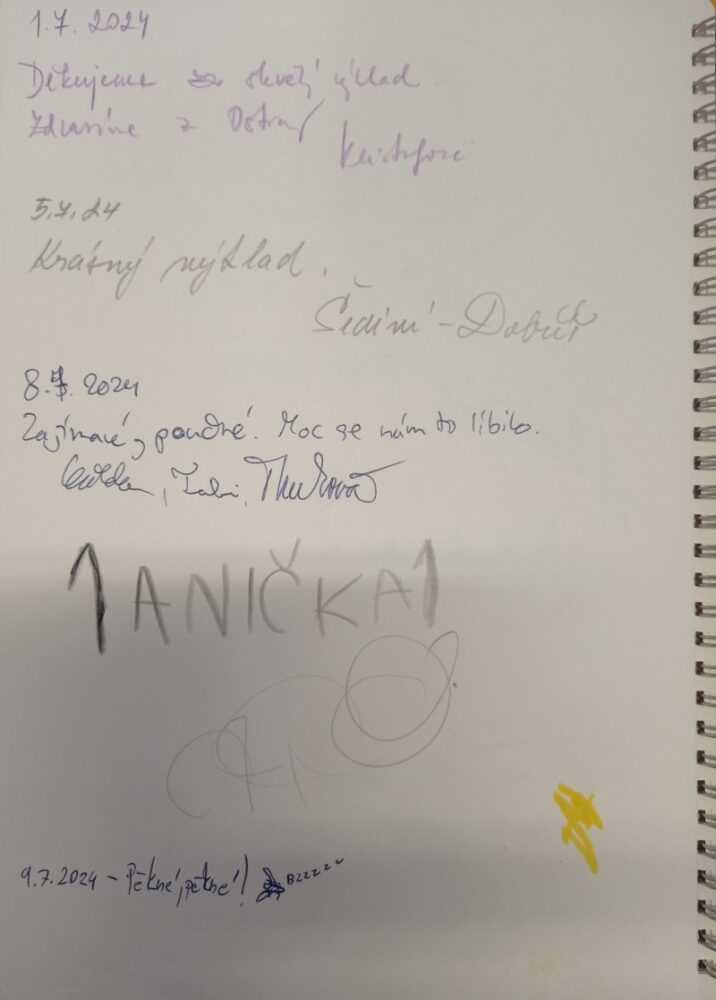 1.7.2024
Děkujeme za skvělý výklad.
Zdravíme z Ostravy
5.7.24
Krásný výklad.
Šediní - Dobříš
8.7.2024
Zajímavé, poučné. Moc se nám to líbilo.
1 ANIČKA 1
9.7.2024 - Pěkné, pěkné! Bzzzzz